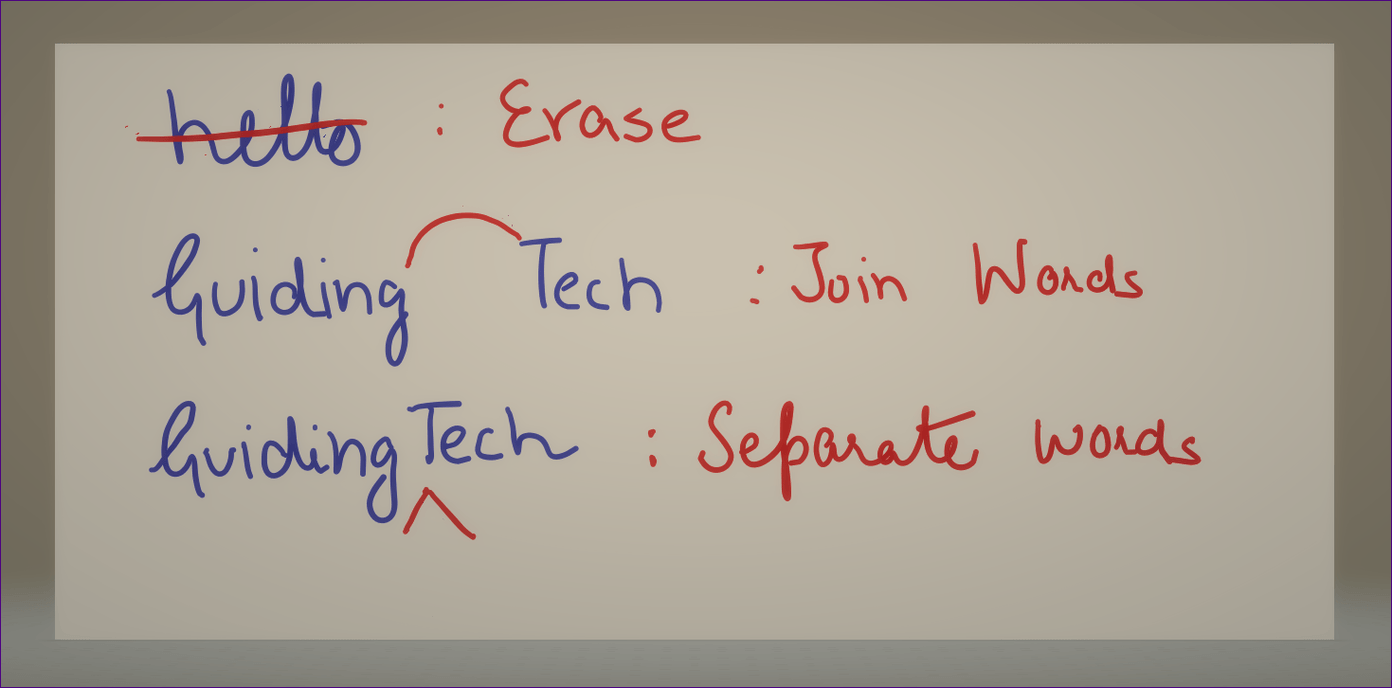 hello : Erase
Guiding Tech : Join Words
GuidingTech : Separate words